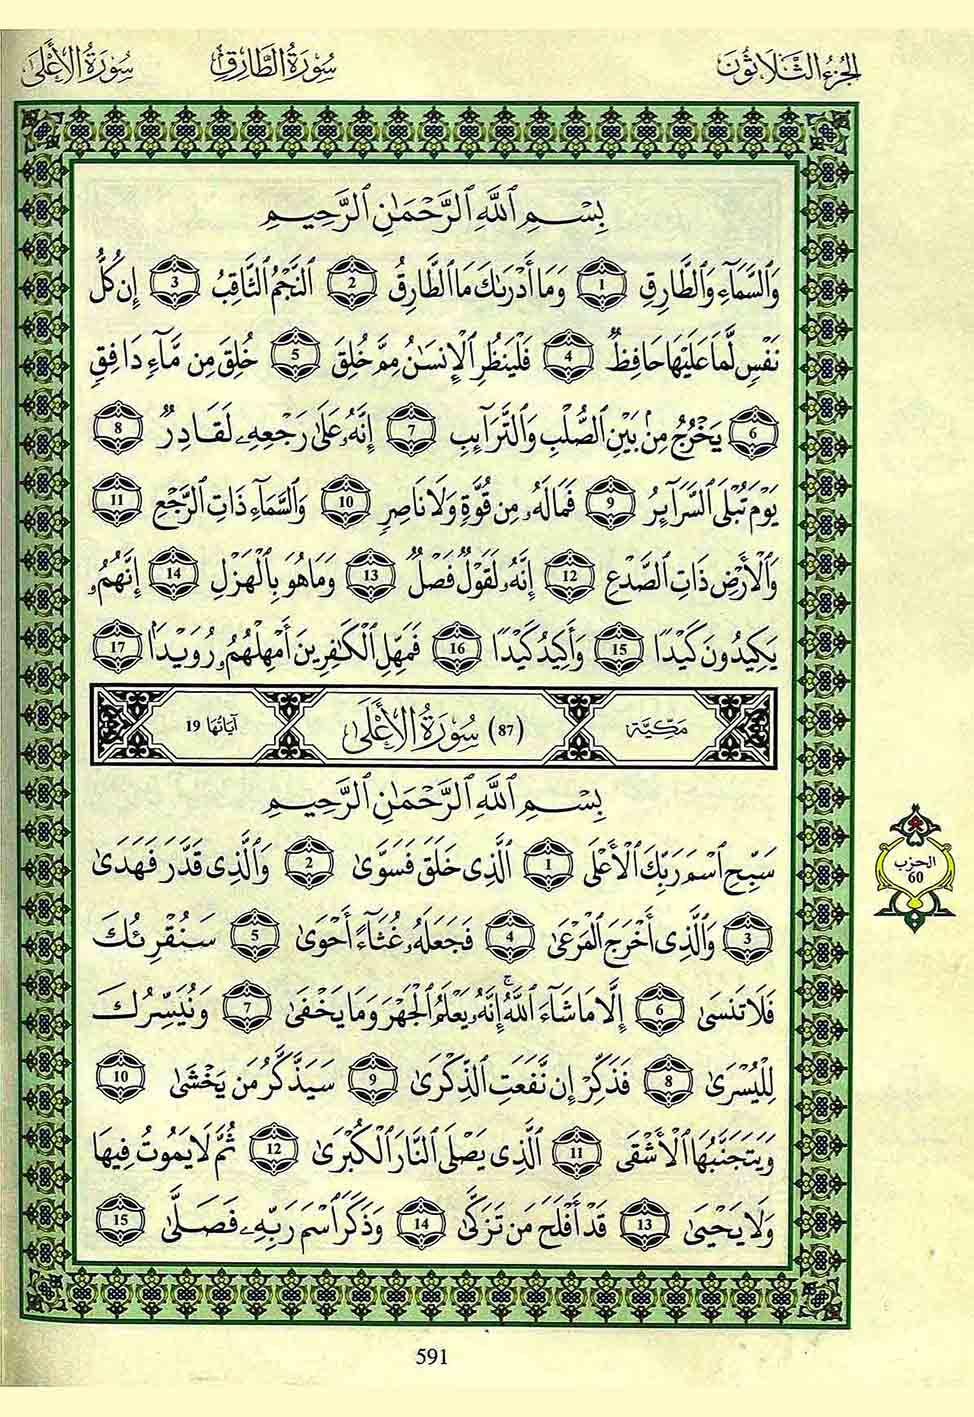 الجزء الثلاثون سورة الطارق سورة الأعلى
بِسْمِ ٱللَّهِ ٱلرَّحْمَٰنِ ٱلرَّحِيمِ
وَٱلسَّمَآءِ وَٱلطَّارِقِ 1 وَمَآ أَدْرَىٰكَ مَا ٱلطَّارِقُ 2 ٱلنَّجْمُ ٱلثَّاقِبُ 3 إِن كُلُّ
نَفْسٍ لَّمَا عَلَيْهَا حَافِظٌ 4 فَلْيَنظُرِ ٱلْإِنسَٰنُ مِمَّ خُلِقَ 5 خُلِقَ مِن مَّآءٍ دَافِقٍ
6 يَخْرُجُ مِنۢ بَيْنِ ٱلصُّلْبِ وَٱلتَّرَآئِبِ 7 إِنَّهُۥ عَلَىٰ رَجْعِهِۦ لَقَادِرٌ 8
يَوْمَ تُبْلَى ٱلسَّرَآئِرُ 9 فَمَا لَهُۥ مِن قُوَّةٍ وَلَا نَاصِرٍ 10 وَٱلسَّمَآءِ ذَاتِ ٱلرَّجْعِ 11
وَٱلْأَرْضِ ذَاتِ ٱلصَّدْعِ 12 إِنَّهُۥ لَقَوْلٌ فَصْلٌ 13 وَمَا هُوَ بِٱلْهَزْلِ 14 إِنَّهُمْ
يَكِيدُونَ كَيْدًا 15 وَأَكِيدُ كَيْدًا 16 فَمَهِّلِ ٱلْكَٰفِرِينَ أَمْهِلْهُمْ رُوَيْدًۢا 17
مكية (87) سورة الأعلى آياتها 19
بِسْمِ ٱللَّهِ ٱلرَّحْمَٰنِ ٱلرَّحِيمِ
سَبِّحِ ٱسْمَ رَبِّكَ ٱلْأَعْلَى 1 ٱلَّذِى خَلَقَ فَسَوَّىٰ 2 وَٱلَّذِى قَدَّرَ فَهَدَىٰ
الحزب
60
3 وَٱلَّذِىٓ أَخْرَجَ ٱلْمَرْعَىٰ 4 فَجَعَلَهُۥ غُثَآءً أَحْوَىٰ 5 سَنُقْرِئُكَ
فَلَا تَنسَىٰٓ 6 إِلَّا مَا شَآءَ ٱللَّهُ ۚ إِنَّهُۥ يَعْلَمُ ٱلْجَهْرَ وَمَا يَخْفَىٰ 7 وَنُيَسِّرُكَ
لِلْيُسْرَىٰ 8 فَذَكِّرْ إِن نَّفَعَتِ ٱلذِّكْرَىٰ 9 سَيَذَّكَّرُ مَن يَخْشَىٰ 10
وَيَتَجَنَّبُهَا ٱلْأَشْقَى 11 ٱلَّذِى يَصْلَى ٱلنَّارَ ٱلْكُبْرَىٰ 12 ثُمَّ لَا يَمُوتُ فِيهَا
وَلَا يَحْيَىٰ 13 قَدْ أَفْلَحَ مَن تَزَكَّىٰ 14 وَذَكَرَ ٱسْمَ رَبِّهِۦ فَصَلَّىٰ 15
591